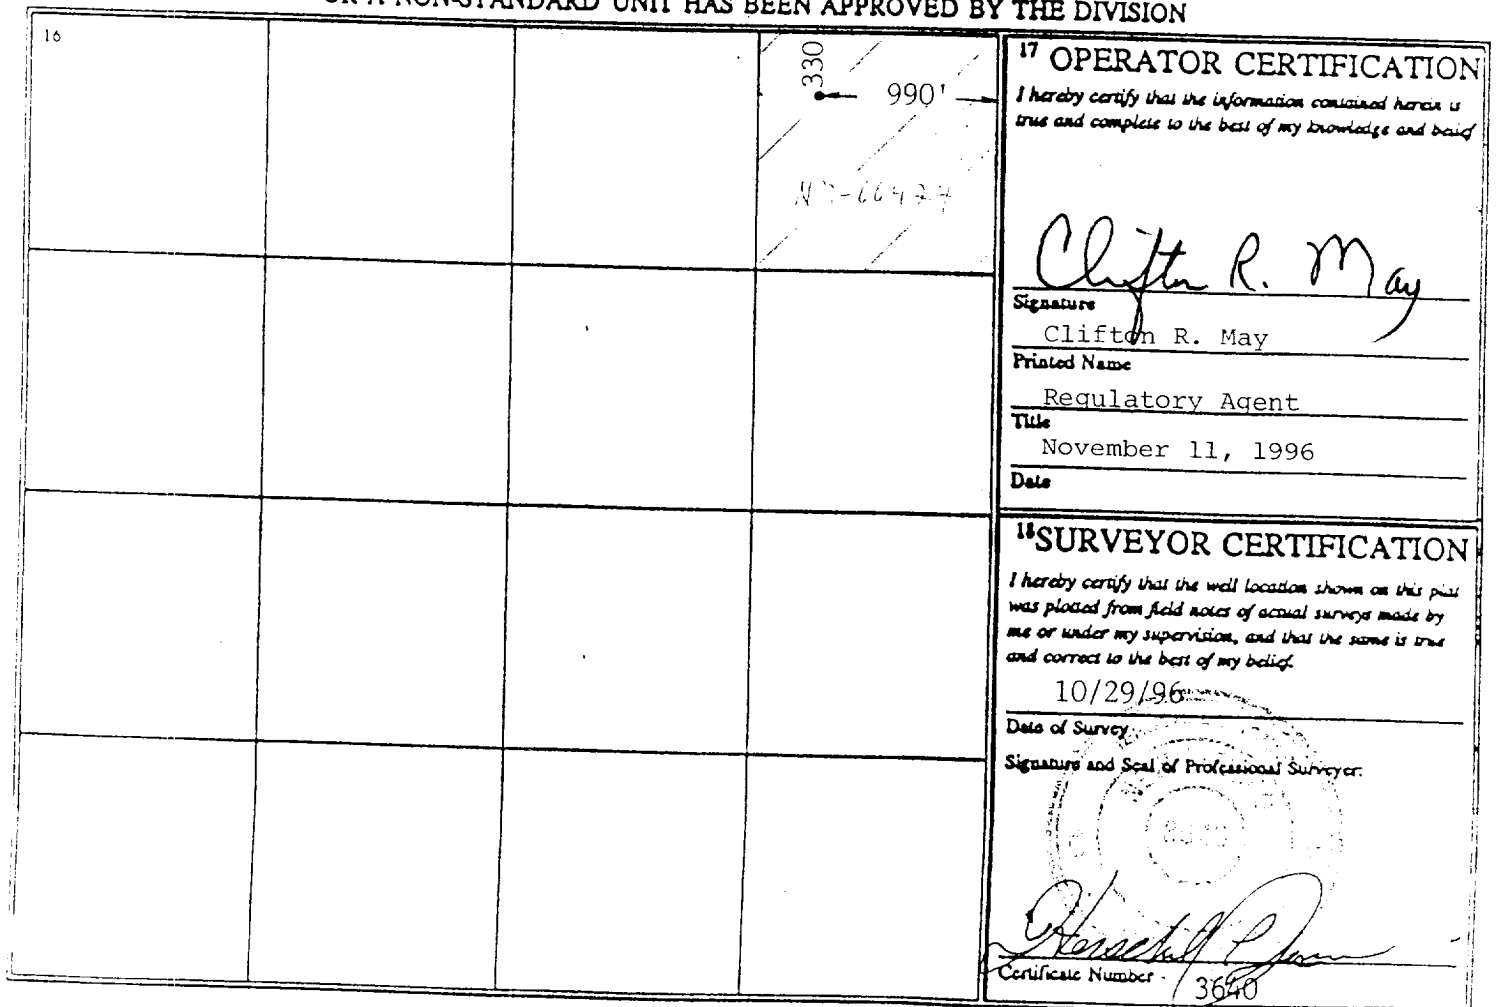 OR A NON-STANDARD UNIT HAS BEEN APPROVED BY THE DIVISION
16
330
990'
17 OPERATOR CERTIFICATION
I hereby certify that the information contained herein is
true and complete to the best of my knowledge and belief
Clifton R. May
Signature
Clifton R. May
Printed Name
Regulatory Agent
Title
November 11, 1996
Date
18 SURVEYOR CERTIFICATION
I hereby certify that the well location shown on this plat
was plotted from field notes of actual surveys made by
me or under my supervision, and that the same is true
and correct to the best of my belief.
10/29/96
Date of Survey
Signature and Seal of Professional Surveyer:
Certificate Number
3640